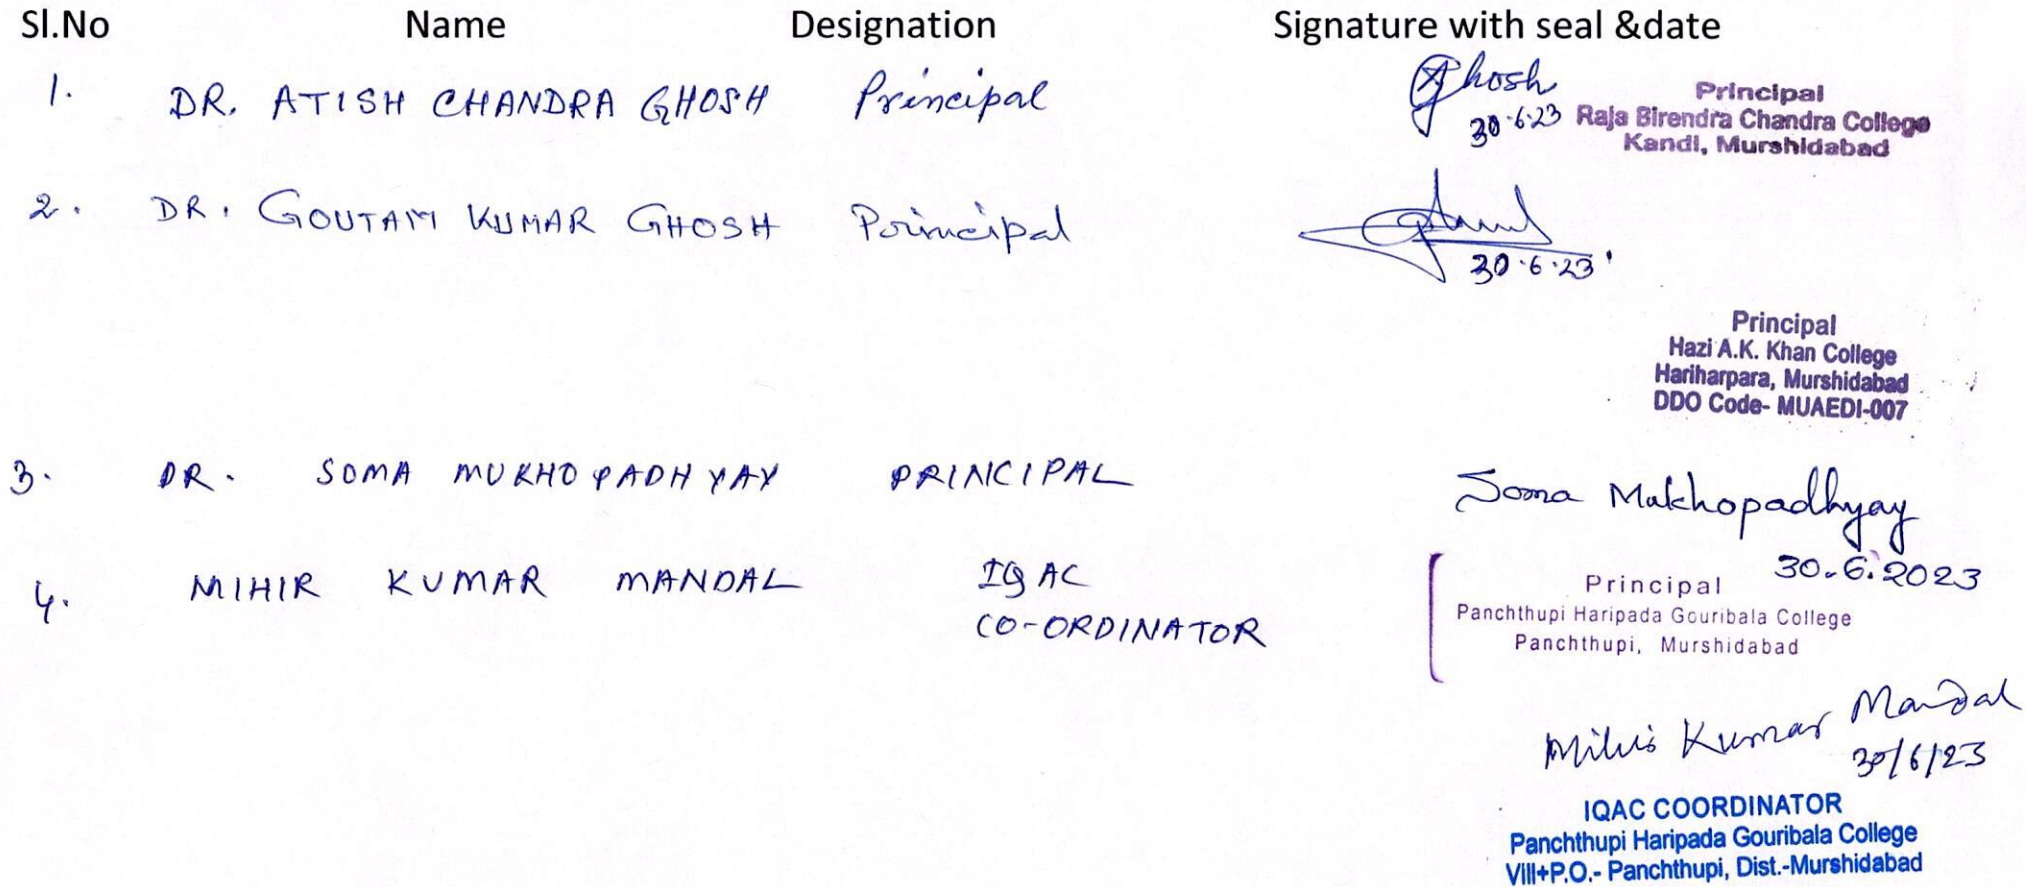 Sl.No Name Designation Signature with seal &date
1. DR. ATISH CHANDRA GHOSH Principal
Ghosh
30.6.23
Principal
Raja Birendra Chandra College
Kandi, Murshidabad
2. DR. GOUTAM KUMAR GHOSH Principal
30.6.23
Principal
Hazi A.K. Khan College
Hariharpara, Murshidabad
DDO Code- MUAEDI-007
3. DR. SOMA MUKHOPADHYAY PRINCIPAL
Soma Mukhopadhyay
30.6.2023
Principal
Panchthupi Haripada Gouribala College
Panchthupi, Murshidabad
4. MIHIR KUMAR MANDAL IQAC
CO-ORDINATOR
Mihir Kumar Mandal
30/6/23
IQAC COORDINATOR
Panchthupi Haripada Gouribala College
Vill+P.O.- Panchthupi, Dist.-Murshidabad